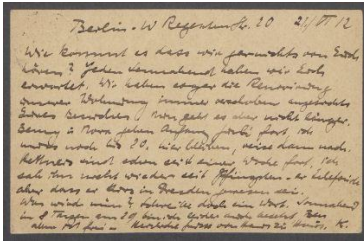 Berlin-W Regentenstr. 20 21/VI 12
Wie kommt es dass wir garnichts von Euch
hören? Jeden Sonnabend haben wir Euch
erwartet. Wir haben sogar die Renovirung
unserer Wohnung immer verschoben angesichts
Eures Besuches. Nun geht es aber nicht länger.
Benny u Nora gehen Anfang Juli fort, ich
muss noch bis 20. hier bleiben, reise dann nach.
Kettners sind schon seit einer Woche fort, ich
sah ihn nicht wieder seit Pfingsten - er telefonirte
aber dass er in Dresden gewesen sei.
Wan wird nun? Schreibe doch ein Wort. Sonnabend
in 8 Tagen am 29 bin ich leider noch besetzt.
also frei - Herzliche Grüsse von Haus zu Haus. K.